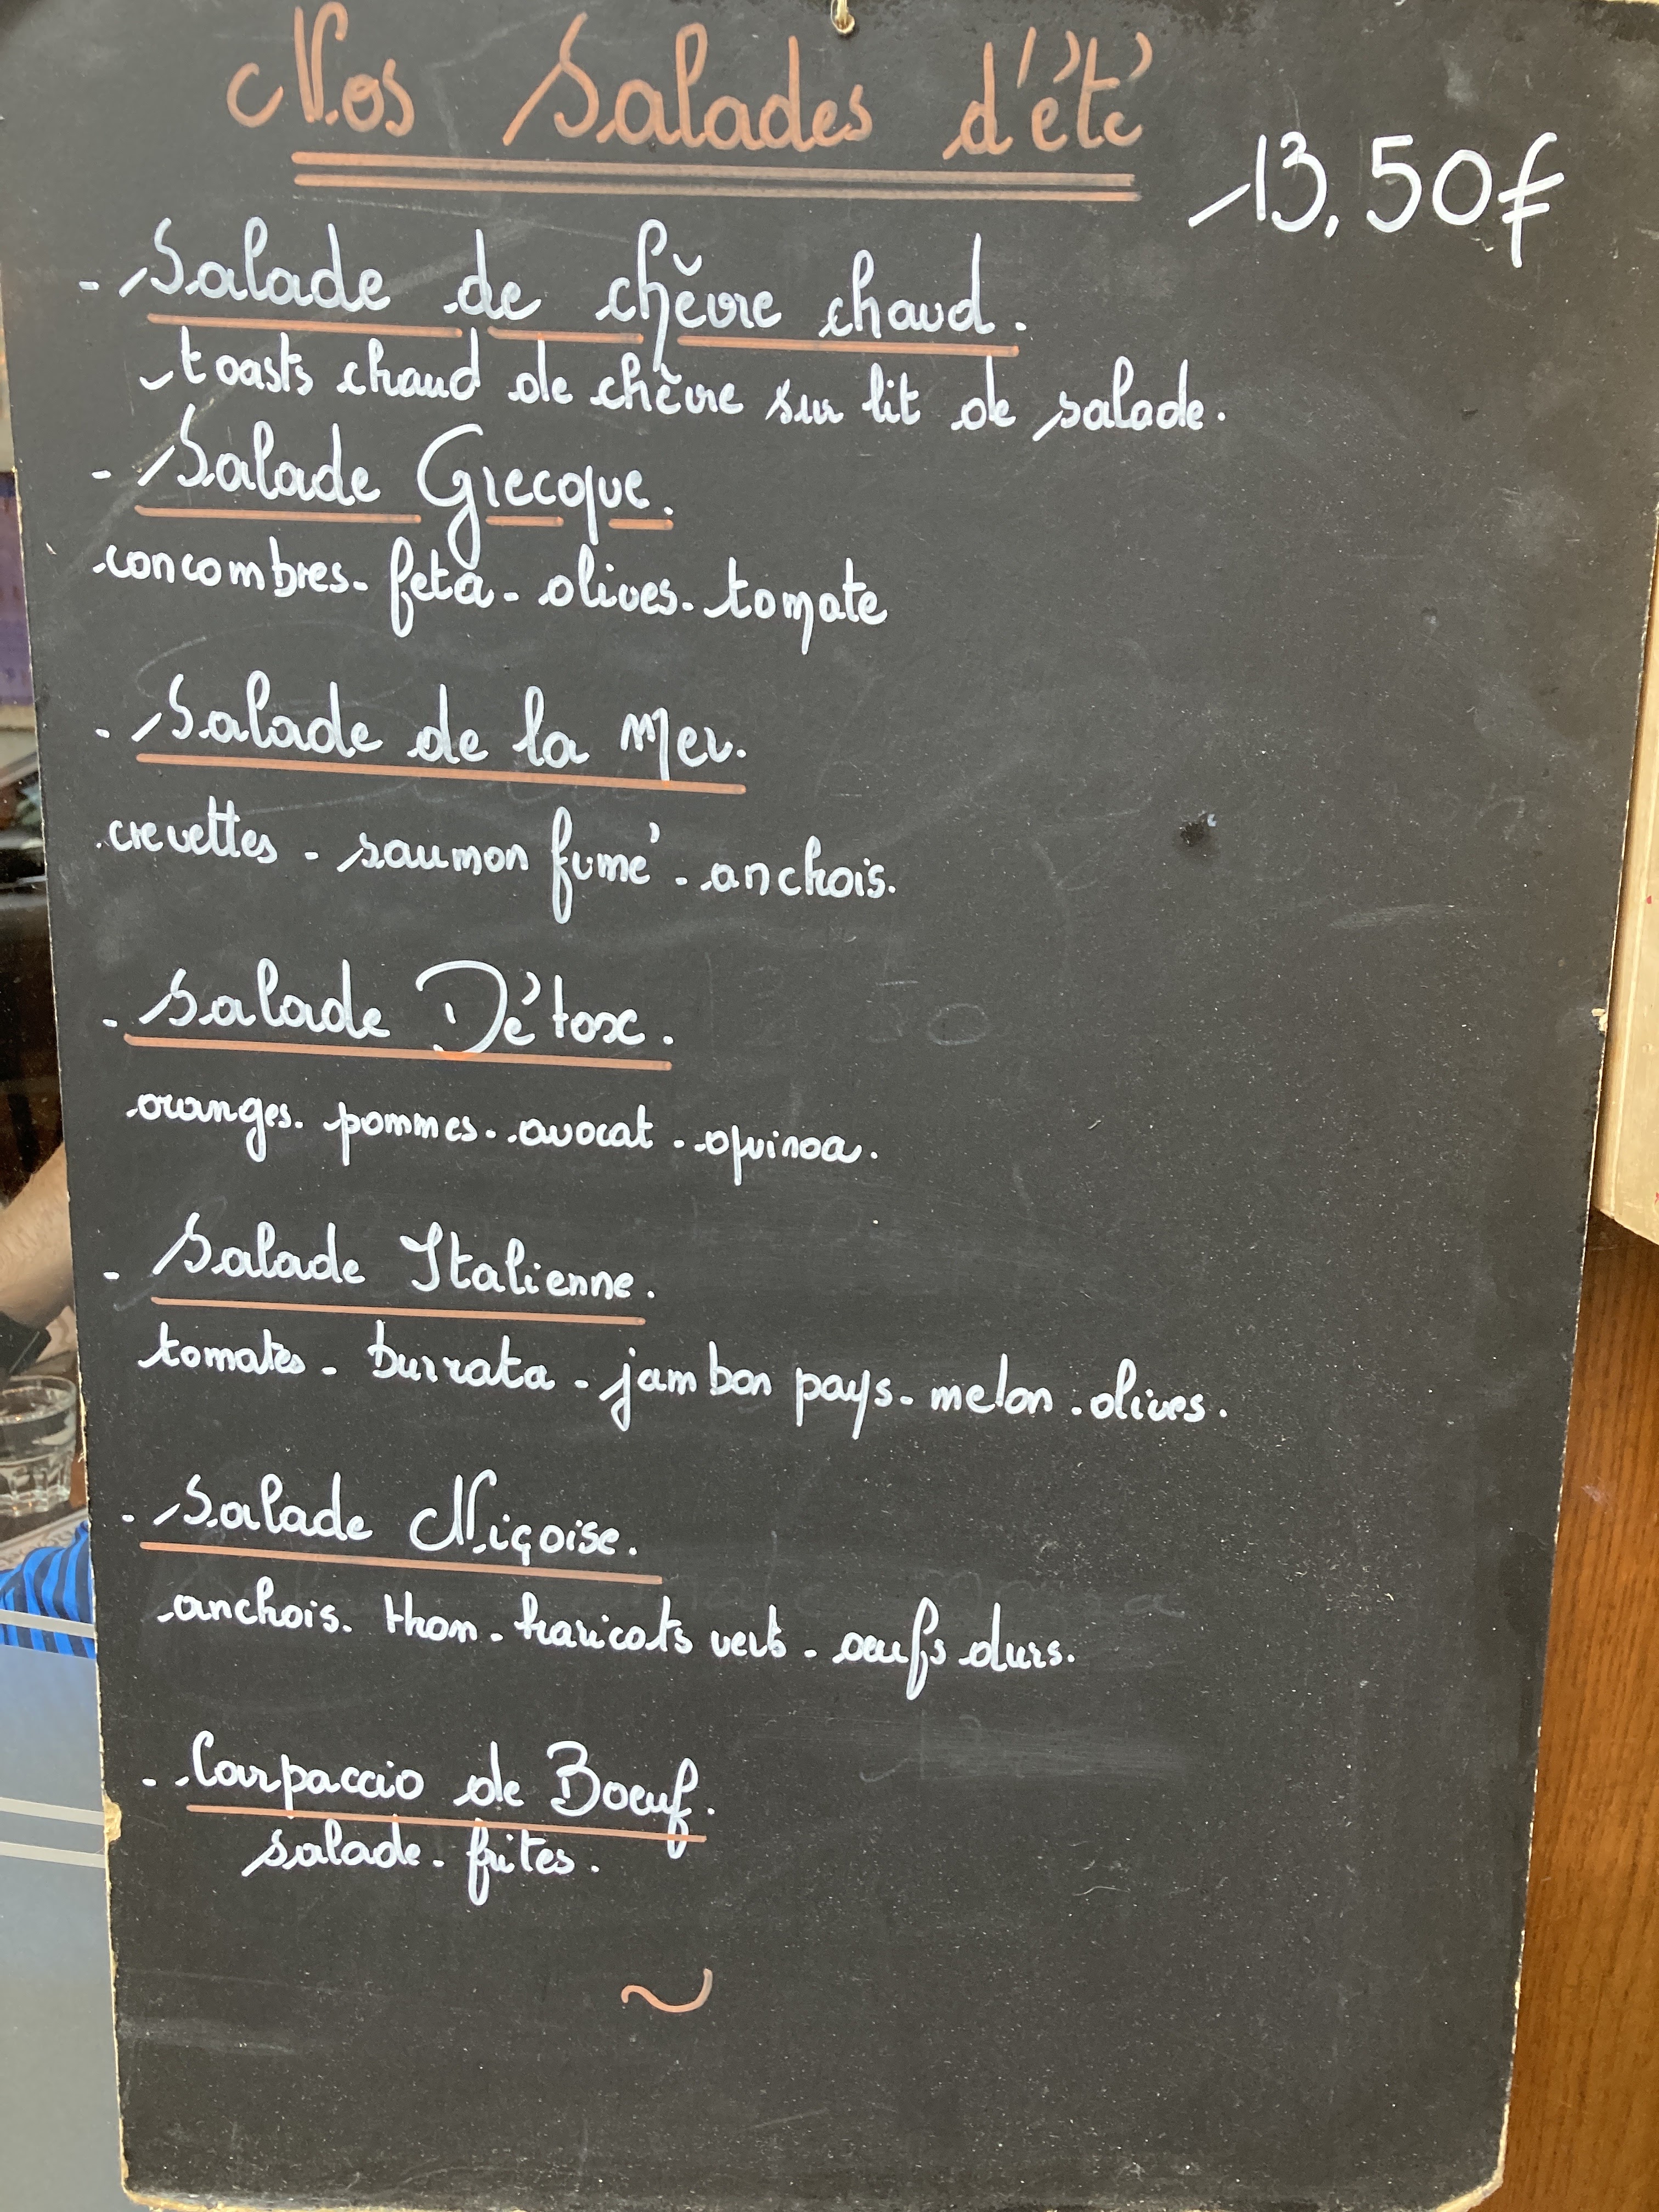 Nos Salades d'été
13,50€
- Salade de chèvre chaud.
toasts chaud de chèvre sur lit de salade.
- Salade Grecque.
concombres - feta - olives - tomate
- Salade de la Mer.
crevettes - saumon fumé - anchois.
- Salade Détox.
oranges - pommes - avocat - quinoa.
- Salade Italienne.
tomates - burrata - jambon pays - melon - olives.
- Salade Niçoise.
anchois - thon - haricots verts - oeufs durs.
- Carpaccio de Boeuf.
salade - frites.